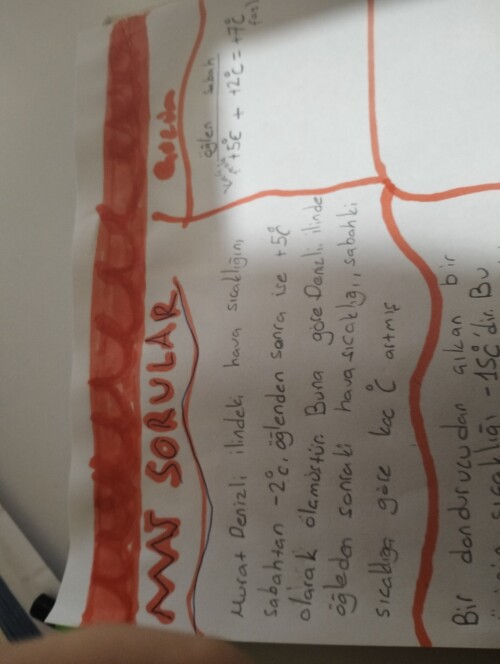 MAT SORULAR
Murat Denizli ilindeki hava sıcaklığını
sabahtan -2°C, öğlenden sonra ise +5°C
olarak ölçmüştür. Buna göre Denizli ilinde
öğleden sonraki hava sıcaklığı, sabahki
sıcaklığa göre kaç °C artmış
öğlen sabah
+5°C + +2°C = +7°C
Bir dondurucudan çıkan bir
sıcaklığı -15°C'dir. Bu